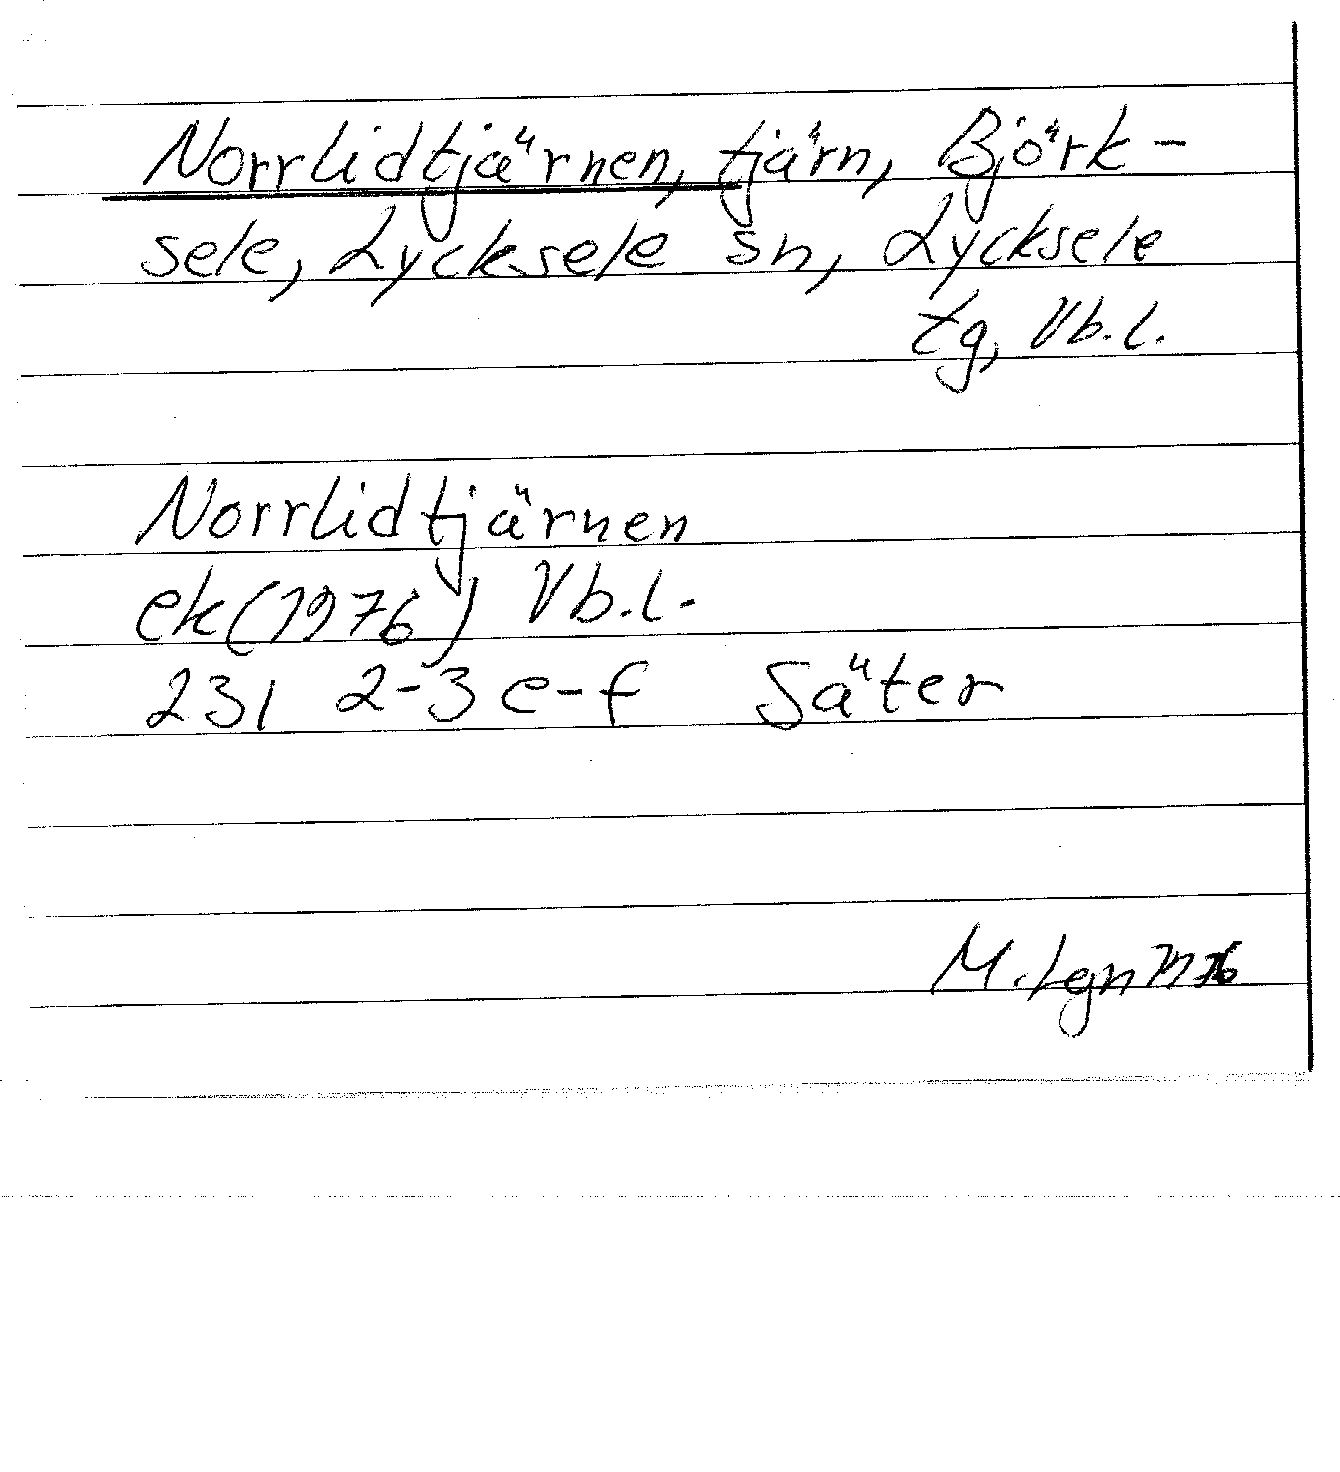 Norrlidtjärnen, tjärn, Björk-
sele, Lycksele sn, Lycksele
tg, Vb.l.
Norrlidtjärnen
ek (1976) Vb.l.
23I 2-3 e-f Säter
M. Lgn